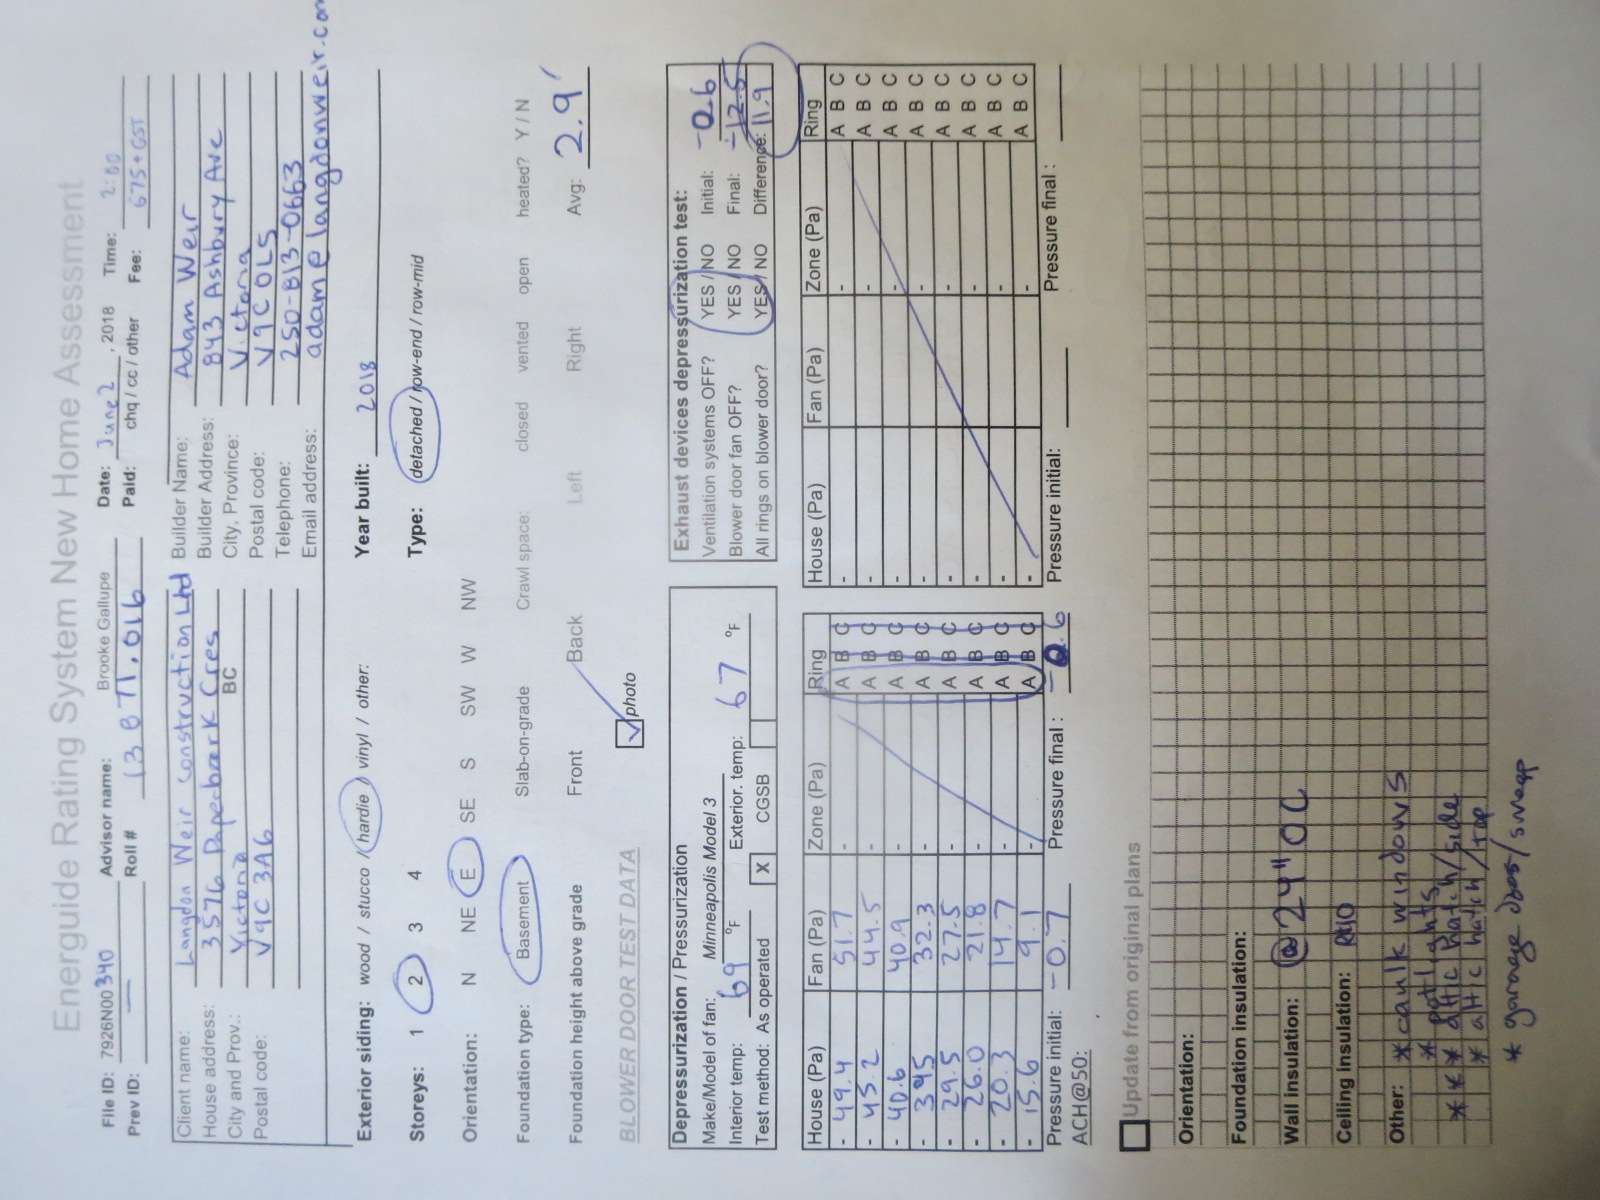 Energuide Rating System New Home Assessment
File ID: 7926N00340 Advisor name: Brooke Gallupe Date: June 2, 2018 Time: 2:00
Prev ID: — Roll # 13 BT1.016 Paid: chq / cc / other Fee: 675+GST
Client name: Langdon Weir Construction Ltd
House address: 3576 Paperbark Cres
City and Prov.: Victoria BC
Postal code: V9C 3A6
Builder Name: Adam Weir
Builder Address: 843 Ashbury Ave
City, Province: Victoria
Postal code: V9C 0L5
Telephone: 250-813-0663
Email address: adam@langdonweir.com
Exterior siding: wood / stucco / hardie / vinyl / other: Year built: 2018
Storeys: 1 2 3 4 Type: detached / row-end / row-mid
Orientation: N NE E SE S SW W NW
Foundation type: Basement Slab-on-grade Crawl space: closed vented open heated? Y / N
Foundation height above grade Front Back Left Right Avg: 2.9'
BLOWER DOOR TEST DATA photo
Depressurization / Pressurization
Make/Model of fan: Minneapolis Model 3
Interior temp: 69 °F Exterior. temp: 67 °F
Test method: As operated X CGSB
Exhaust devices depressurization test:
Ventilation systems OFF? YES / NO Initial: -0.6
Blower door fan OFF? YES / NO Final: -12.5
All rings on blower door? YES / NO Difference: 11.9
House (Pa) Fan (Pa) Zone (Pa) Ring
- 49.4 51.7 - A B C
- 45.2 44.5 A B C
- 40.6 40.9 A B C
- 34.5 32.3 A B C
- 29.5 27.5 A B C
- 26.0 21.8 A B C
- 20.3 14.7 A B C
- 15.6 9.1 - A B C
Pressure initial: -0.7 Pressure final : -0.6
ACH@50:
House (Pa) Fan (Pa) Zone (Pa) Ring
- - A B C
- - A B C
- - A B C
- - A B C
- - A B C
- - A B C
- - A B C
- - A B C
Pressure initial: Pressure final :
Update from original plans
Orientation:
Foundation insulation:
Wall insulation: @ 24" OC
Ceiling insulation: R40
Other: * caulk windows
* potlights
** attic hatch/side
* attic hatch/top
* garage door/